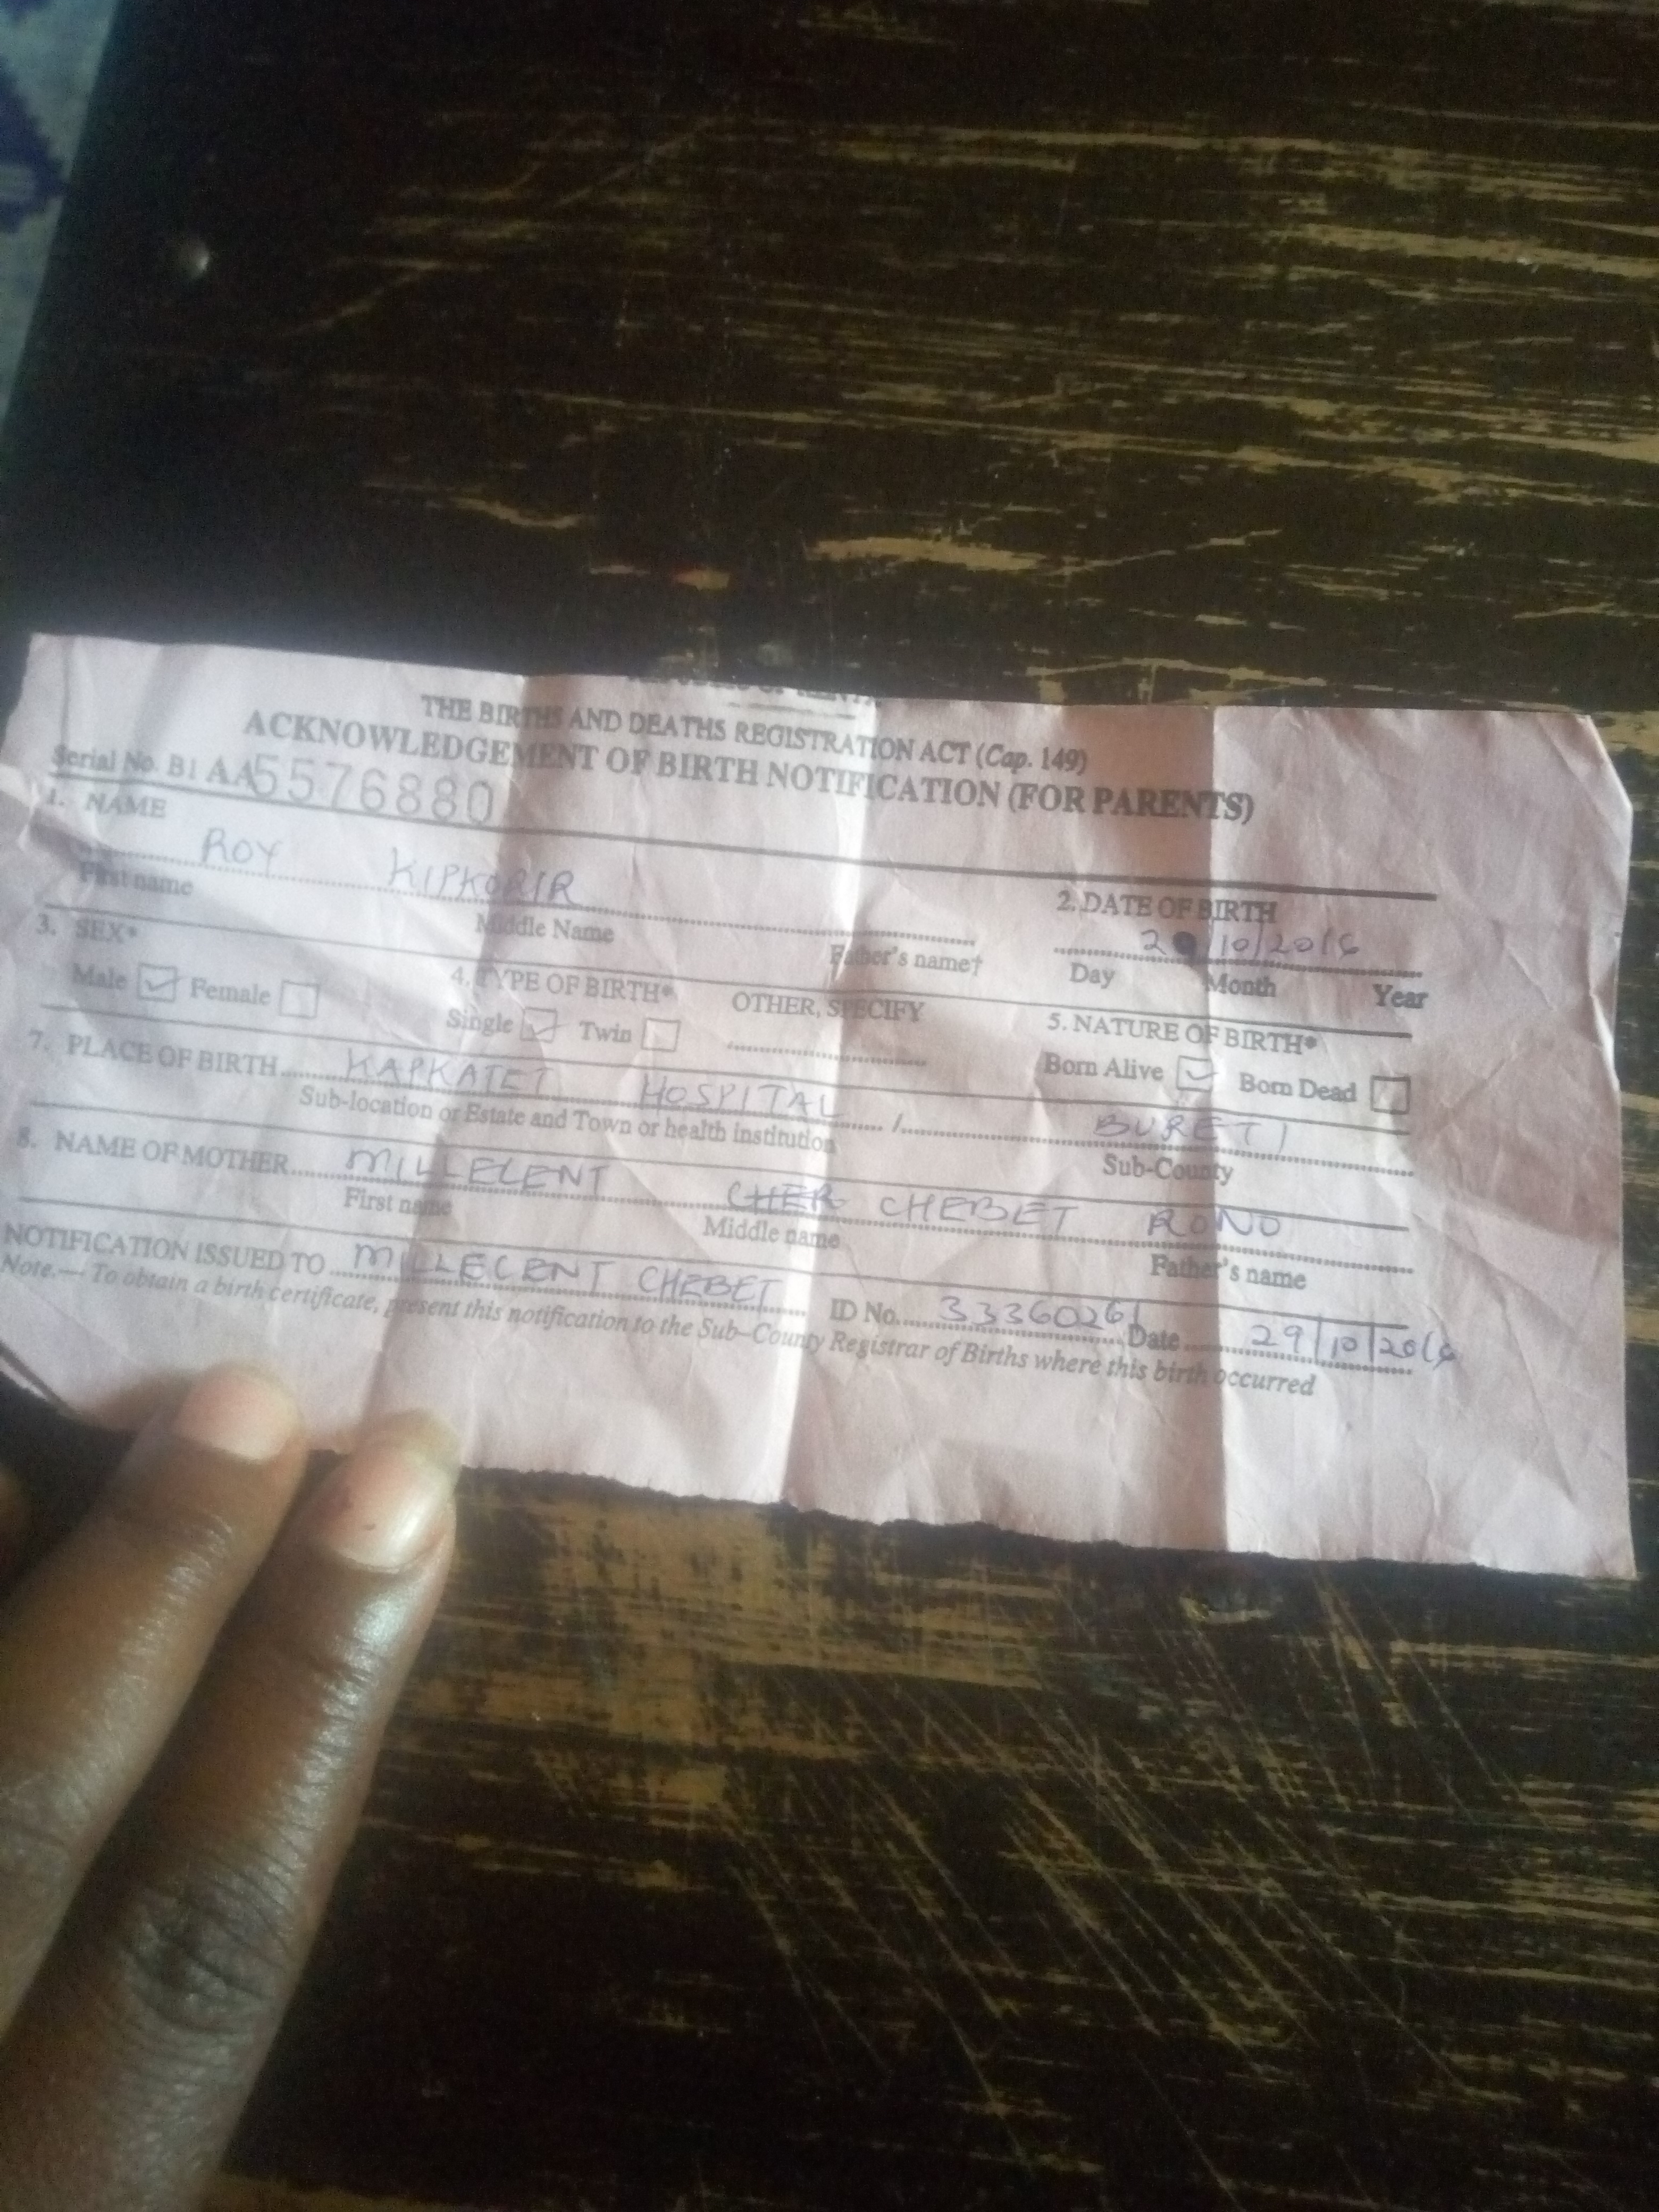 THE BIRTHS AND DEATHS REGISTRATION ACT (Cap. 149)
ACKNOWLEDGEMENT OF BIRTH NOTIFICATION (FOR PARENTS)
Serial No. B1 AA5576880
1. NAME
ROY KIPKORIR
First name Middle Name Father's name†
2. DATE OF BIRTH
/10/2016
Day Month Year
3. SEX*
Male Female
4. TYPE OF BIRTH*
Single Twin
OTHER, SPECIFY
5. NATURE OF BIRTH*
Born Alive Born Dead
7. PLACE OF BIRTH KAPKATET HOSPITAL / BURETI
Sub-location or Estate and Town or health institution Sub-County
8. NAME OF MOTHER MILLECENT CHER CHEBET RONO
First name Middle name Father's name
NOTIFICATION ISSUED TO MILLECENT CHEBET ID No. 33360261 Date 29/10/2016
Note.— To obtain a birth certificate, present this notification to the Sub-County Registrar of Births where this birth occurred